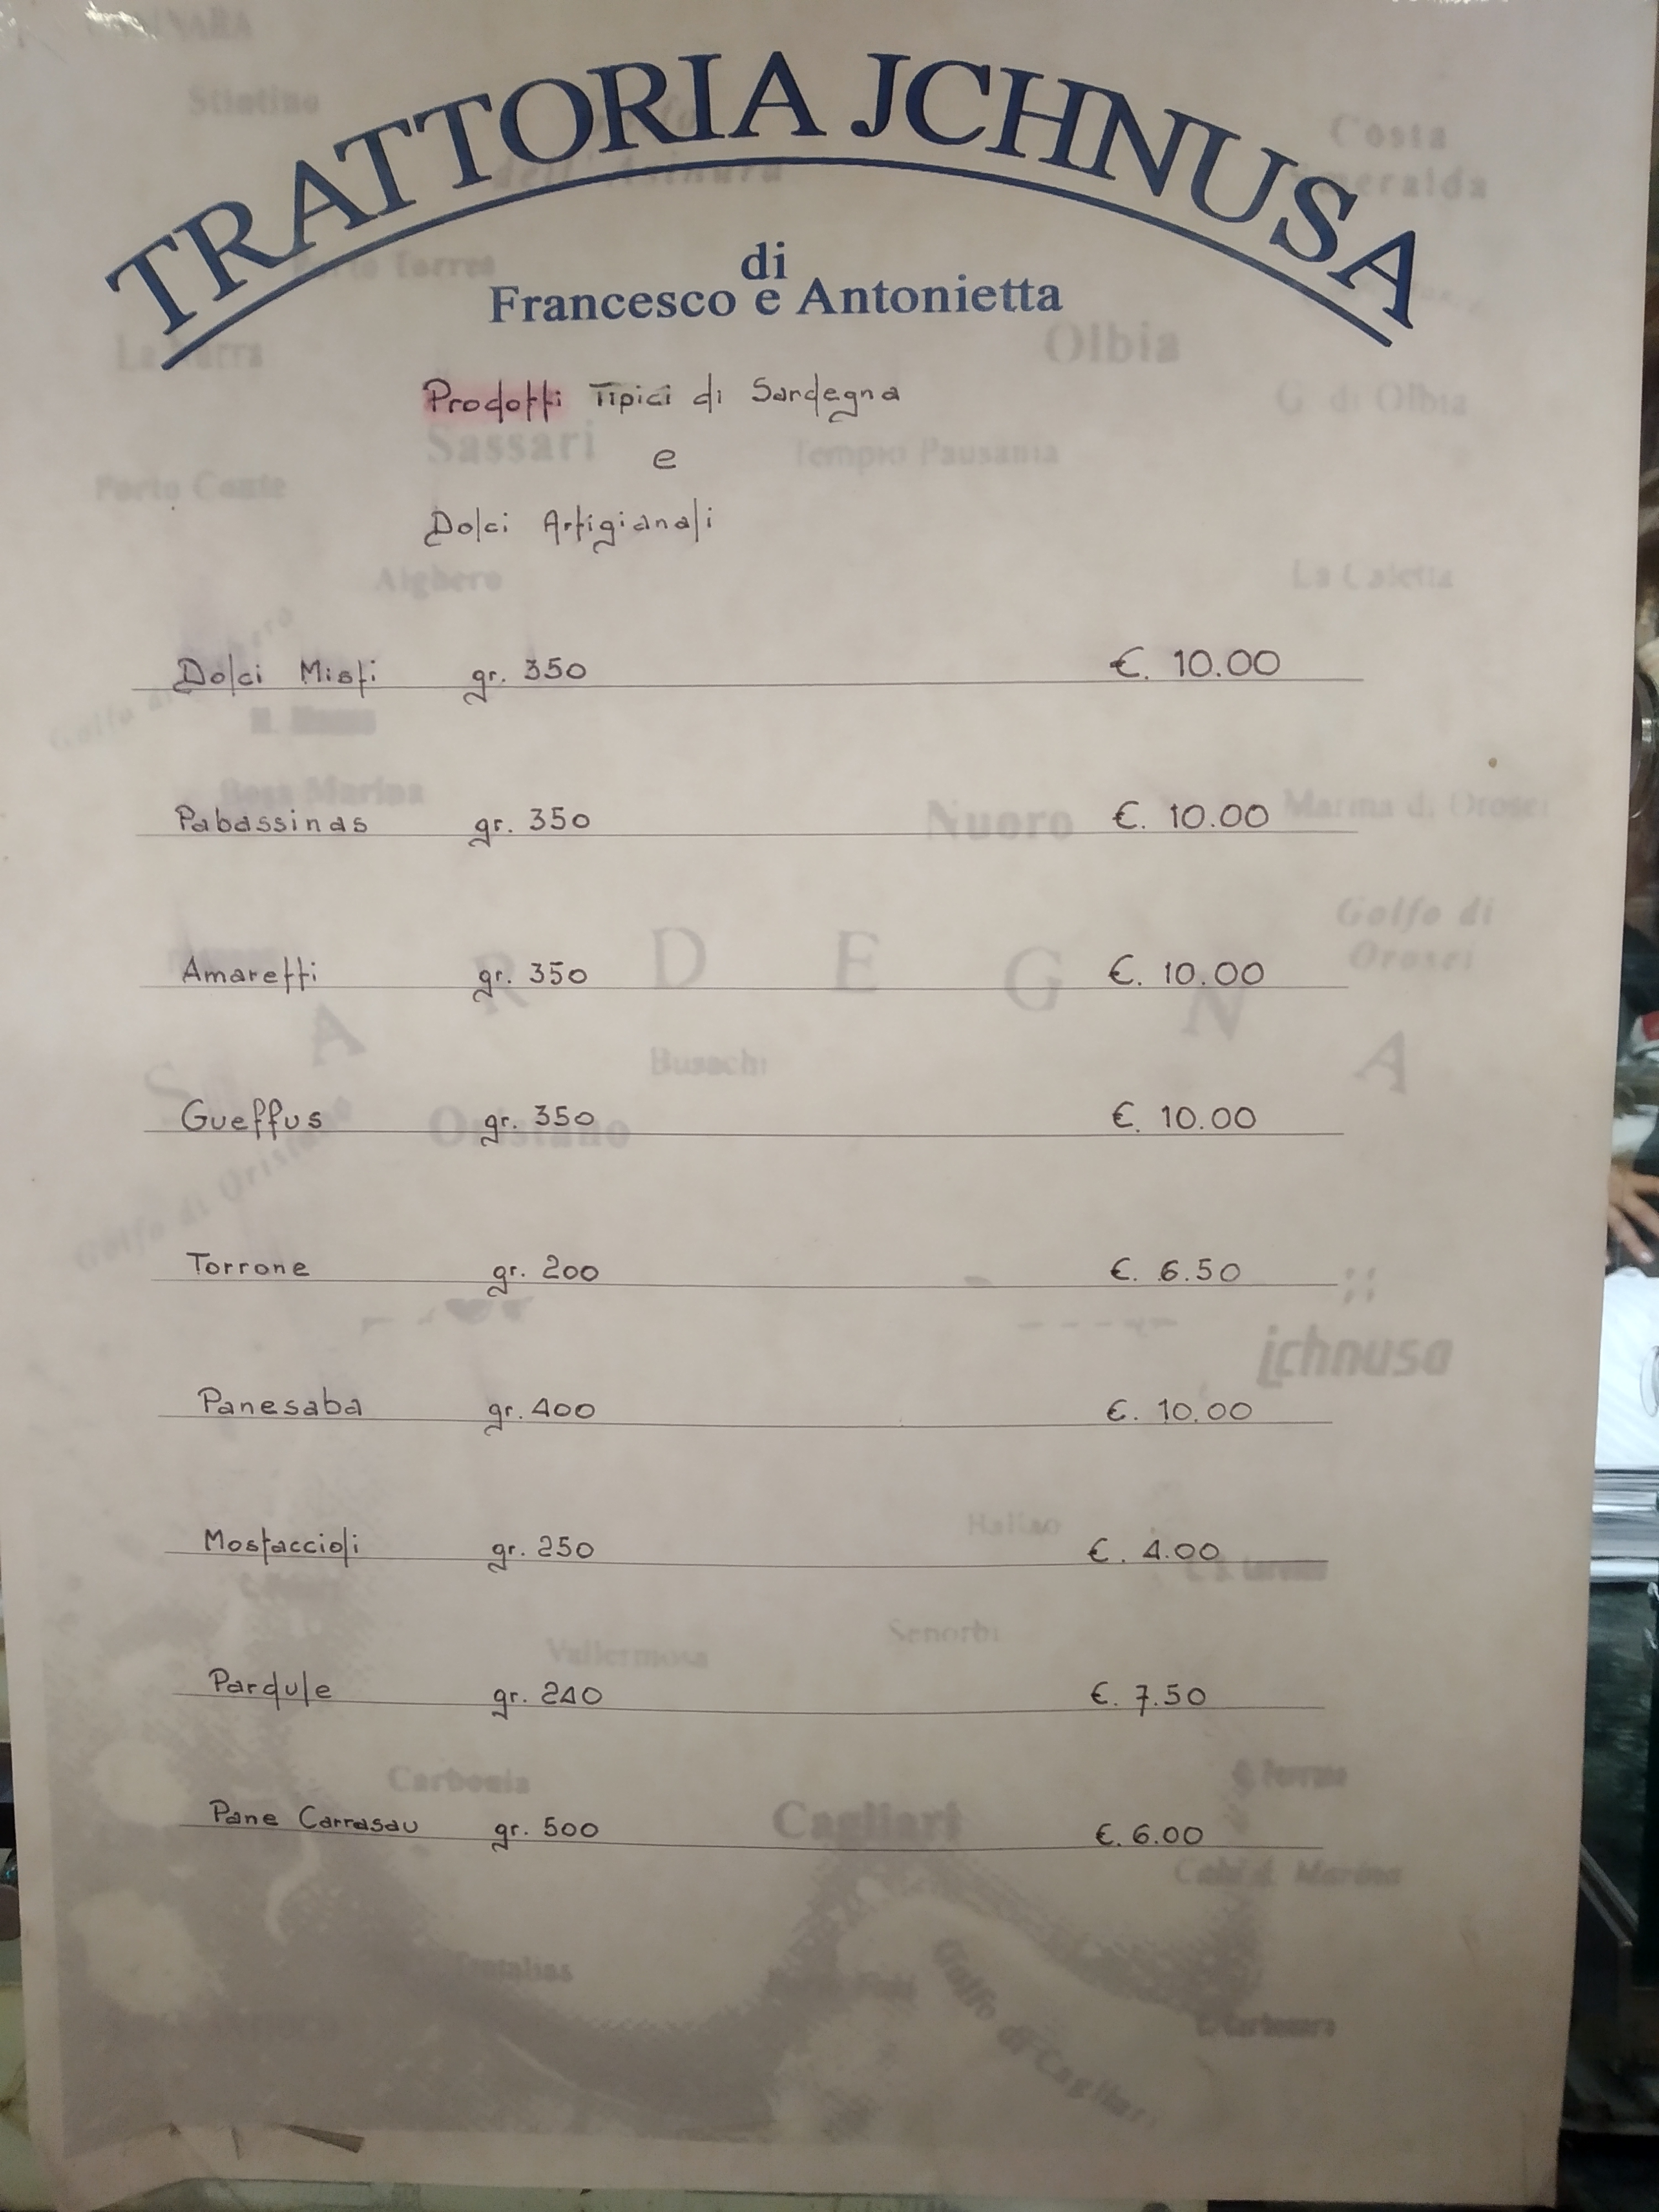 TRATTORIA JCHNUSA
di
Francesco e Antonietta
Prodotti Tipici di Sardegna
e
Dolci Artigianali
Dolci Misti gr. 350 €. 10.00
Pabassinas gr. 350 €. 10.00
Amaretti gr. 350 €. 10.00
Gueffus gr. 350 €. 10.00
Torrone gr. 200 €. 6.50
Panesaba gr. 400 €. 10.00
Mostaccioli gr. 250 €. 4.00
Pardule gr. 240 €. 7.50
Pane Carrasau gr. 500 €. 6.00
Stintino
dell'Asinara
Costa
Smeralda
Torres
Olbia
G. di Olbia
Sassari
Tempio Pausania
Porto Conte
Alghero
La Caletta
Bosa Marina
Nuoro
Marina di Orosei
Golfo di
Orosei
SARDEGNA
Busachi
Oristano
Golfo di Oristano
jchnusa
Vallermosa
Senorbi
Carbonia
Cagliari
Golfo di Cagliari